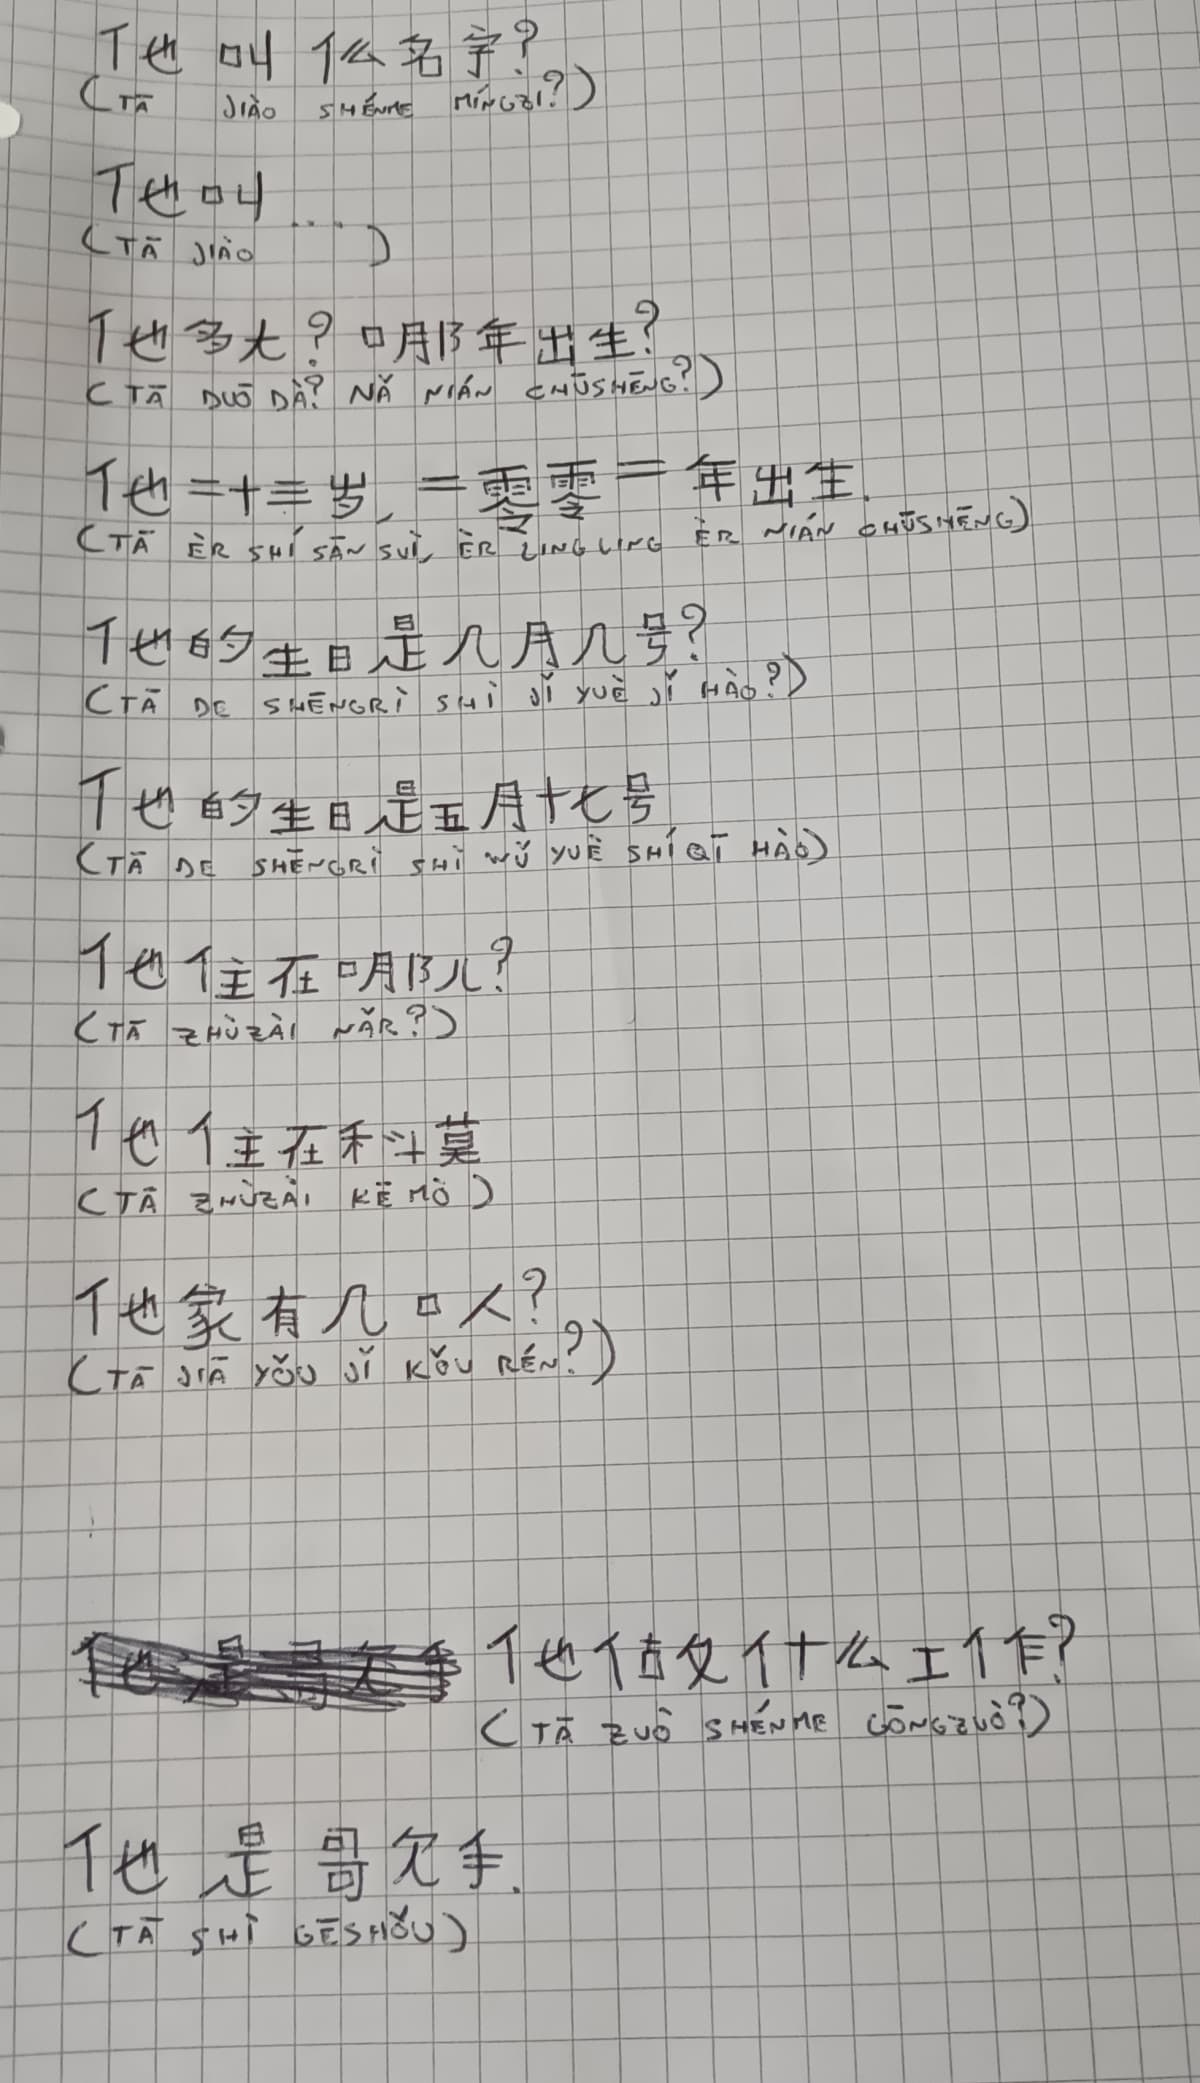 他叫什么名字?
(TĀ JIÀO SHÉNME MÍNGZI?)
他叫...
(TĀ JIÀO ....)
他多大? 哪年出生?
(TĀ DUŌ DÀ? NǍ NIÁN CHŪSHĒNG?)
他二十三岁, 二零零二年出生.
(TĀ ÈR SHÍ SĀN SUÌ, ÈR LINGLING ÈR NIÁN CHŪSHĒNG)
他的生日是几月几号?
(TĀ DE SHĒNGRÌ SHÌ JǏ YUÈ JǏ HÀO?)
他的生日是五月十七号
(TĀ DE SHĒNGRÌ SHÌ WǓ YUÈ SHÍ QĪ HÀO)
他住在哪儿?
(TĀ ZHÙZÀI NǍR?)
他住在科莫
(TĀ ZHÙZÀI KĒ MÒ)
他家有几口人?
(TĀ JIĀ YǑU JǏ KǑU RÉN?)
他做什么工作?
(TĀ ZUÒ SHÉNME GŌNGZUÒ?)
他是歌手.
(TĀ SHÌ GĒSHǑU)